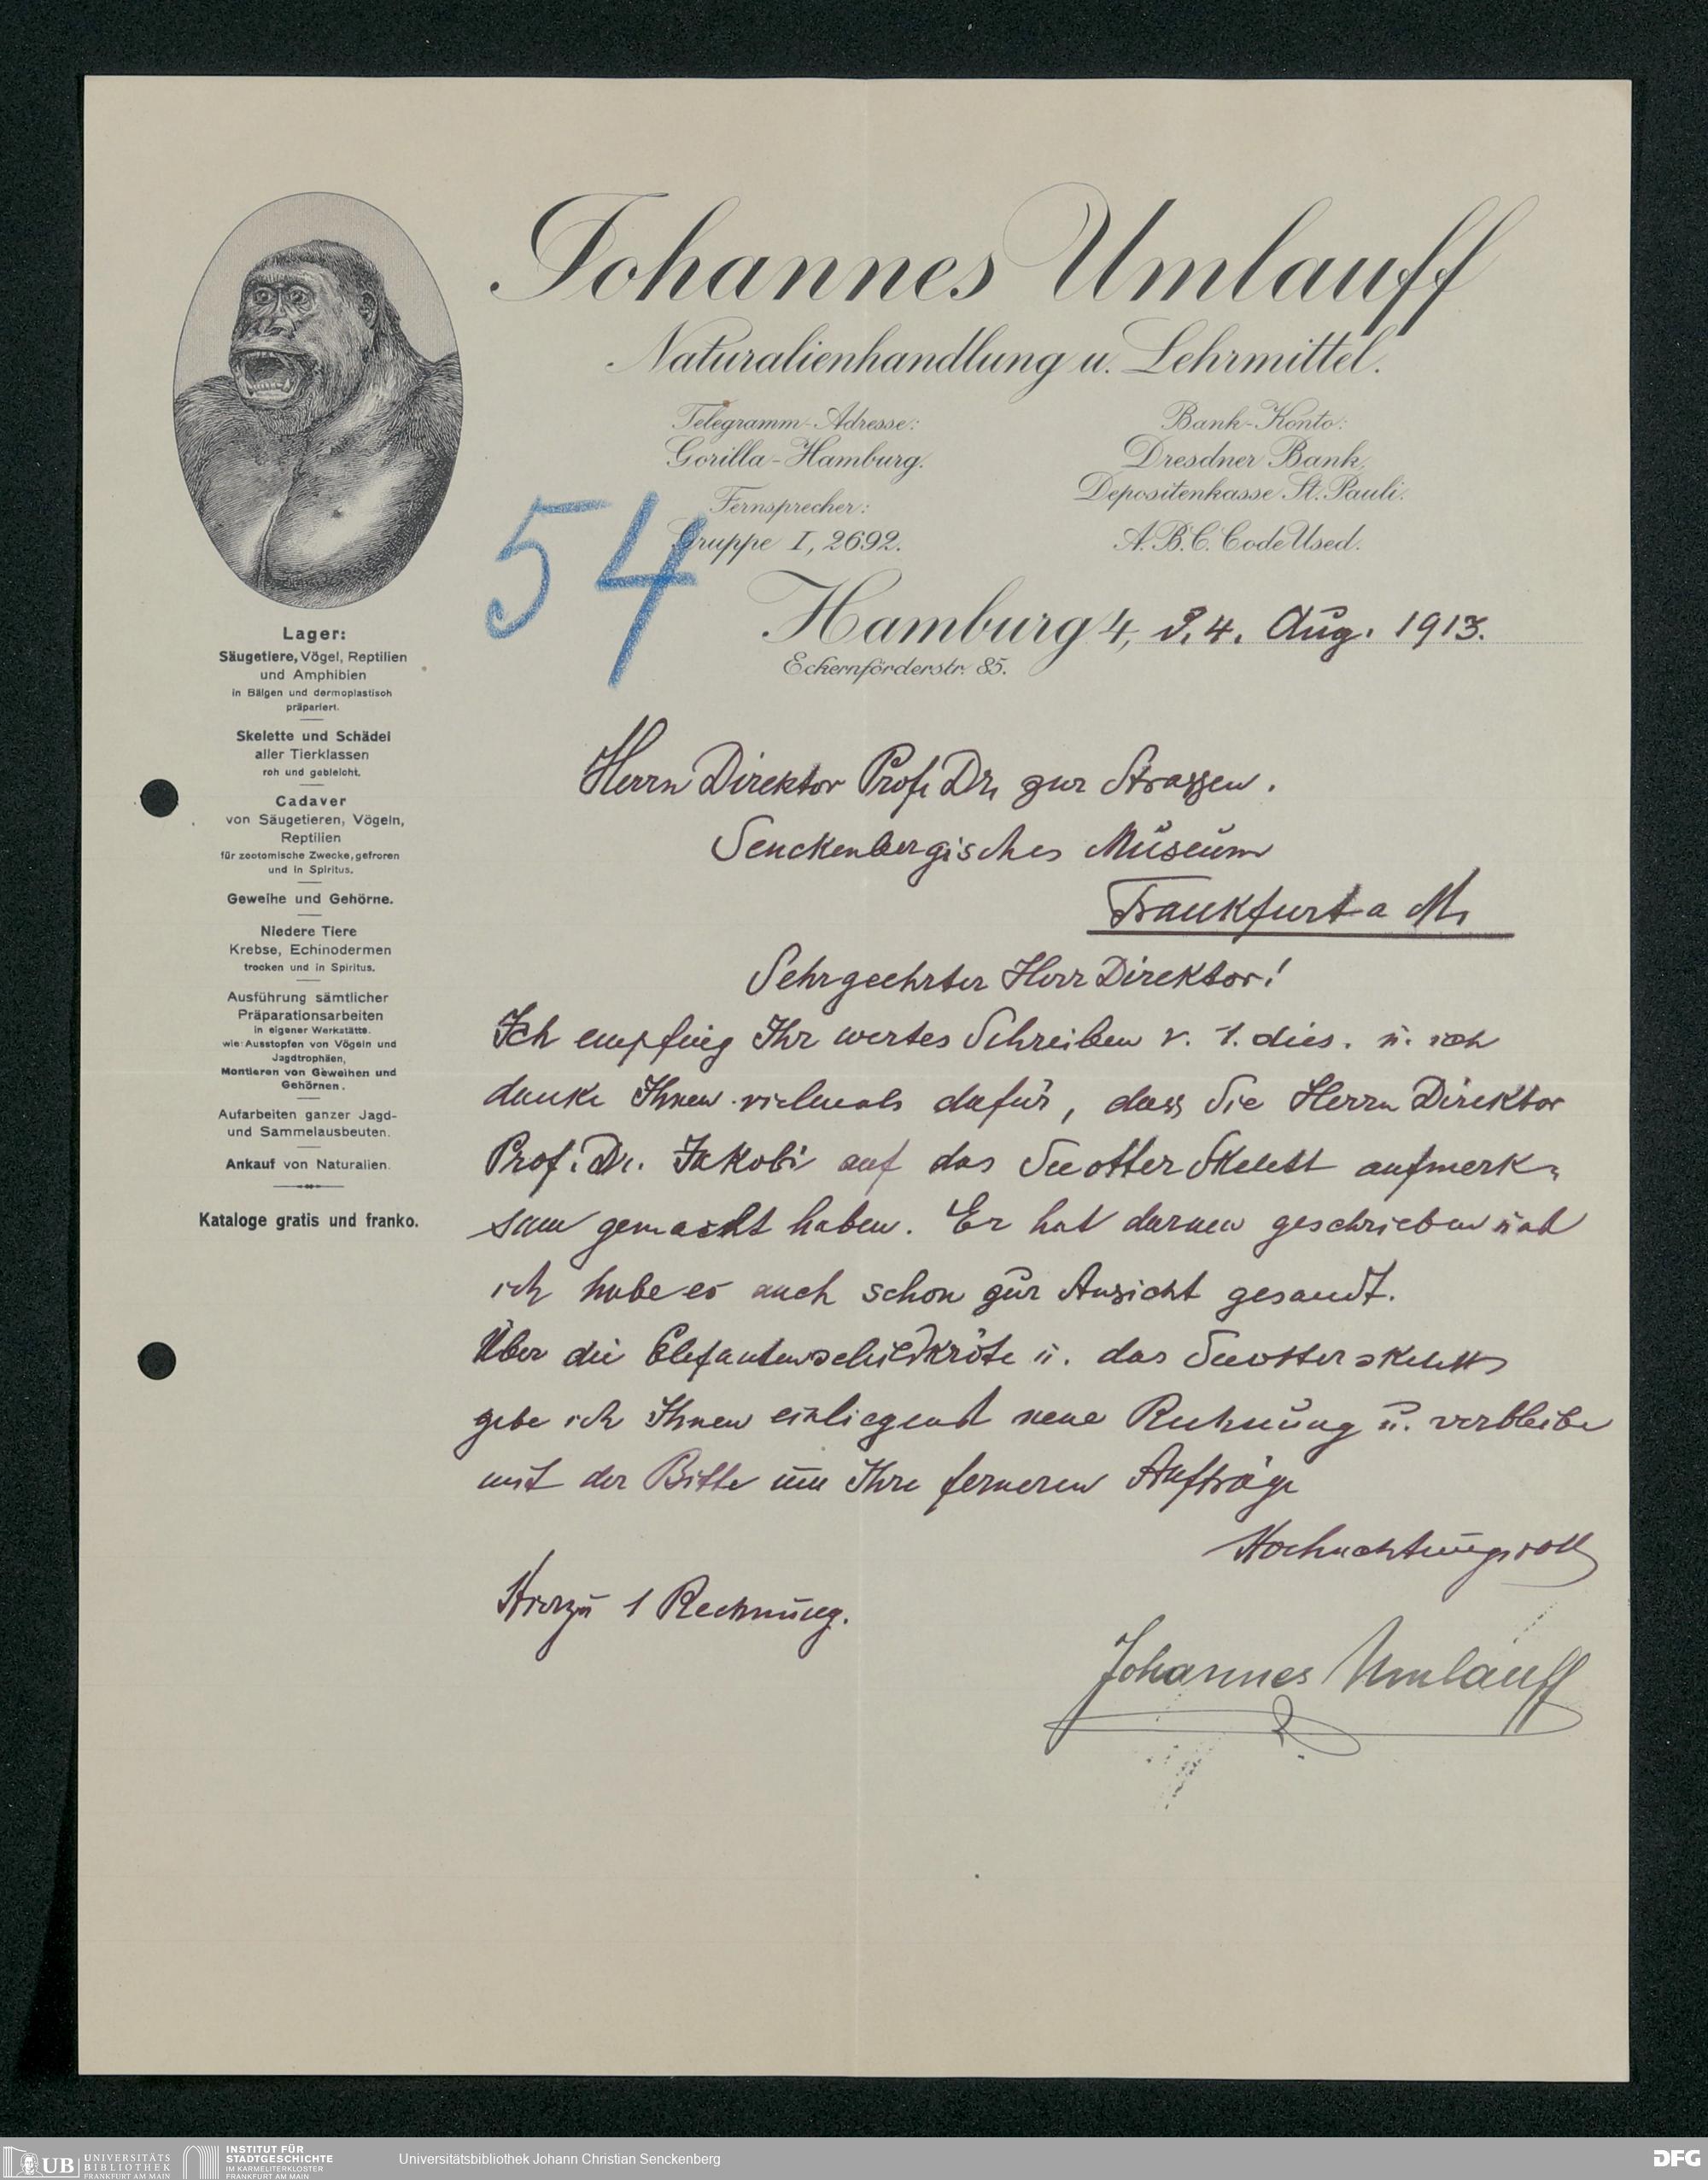 Johannes Umlauff
Naturalienhandlung u. Lehrmittel.
Telegramm-Adresse:
Gorilla-Hamburg.
Fernsprecher:
Gruppe I, 2692.
Bank-Konto:
Dresdner Bank,
Depositenkasse St. Pauli.
A.B.C. Code Used.
54
Hamburg 4, d. 4. Aug. 1913.
Eckernförderstr. 85.
Lager:
Säugetiere, Vögel, Reptilien
und Amphibien
in Bälgen und dermoplastisch
präpariert.
Skelette und Schädel
aller Tierklassen
roh und gebleicht.
Cadaver
von Säugetieren, Vögeln,
Reptilien
für zootomische Zwecke, gefroren
und in Spiritus.
Geweihe und Gehörne.
Niedere Tiere
Krebse, Echinodermen
trocken und in Spiritus.
Ausführung sämtlicher
Präparationsarbeiten
in eigener Werkstätte.
wie: Ausstopfen von Vögeln und
Jagdtrophäen,
Montieren von Geweihen und
Gehörnen.
Aufarbeiten ganzer Jagd-
und Sammelausbeuten.
Ankauf von Naturalien.
Kataloge gratis und franko.
Herrn Direktor Prof. Dr. zur Strassen.
Senckenbergisches Museum
Frankfurt a M.
Sehrgeehrter Herr Direktor!
Ich empfing Ihr wertes Schreiben v. 1. dies. u. ich
danke Ihnen vielmals dafür, dass Sie Herrn Direktor
Prof. Dr. Jakobi auf das Seeotter Skelett aufmerk-
sam gemacht haben. Er hat darum geschrieben und
ich habe es auch schon zur Ansicht gesandt.
Über die Elefantenschildkröte u. das Seeotterskelett
gebe ich Ihnen einliegend neue Rechnung u. verbleibe
mit der Bitte um Ihre ferneren Aufträge
Hochachtungsvoll
Hierzu 1 Rechnung.
Johannes Umlauff
UB UNIVERSITÄTS
BIBLIOTHEK
FRANKFURT AM MAIN
INSTITUT FÜR
STADTGESCHICHTE
IM KARMELITERKLOSTER
FRANKFURT AM MAIN
Universitätsbibliothek Johann Christian Senckenberg
DFG